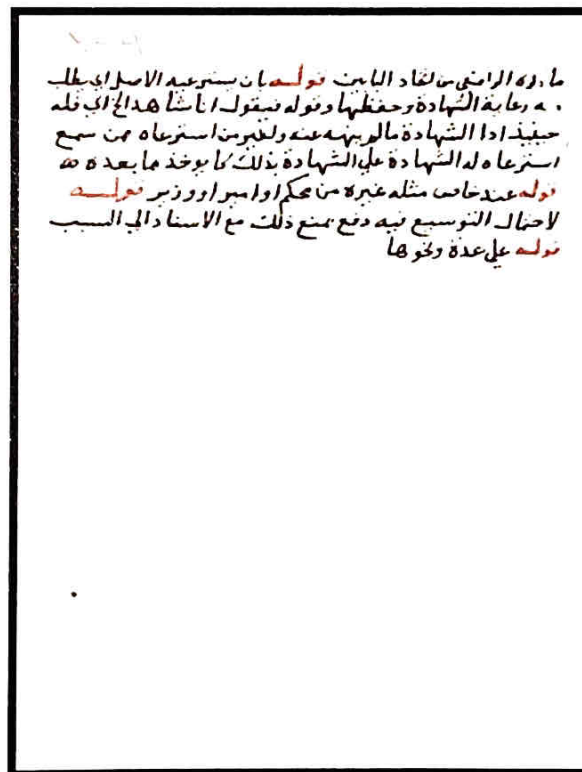 ما رده الرافعي من اتحاد البابين قوله بان يسترعيه الاصل اي يطلب
منه رعاية الشهادة وحفظها وقوله فيقول انا شاهد الخ اي فله
حينيذ ادا الشهادة مالم ينهه عنه ولغير من استرعاه ممن سمع
استرعاه له الشهادة علي الشهادة بذلك كما يوخذ مما بعده
قوله عند حاكم مثله غيره من محكم او امير او وزير قوله
لاحتمال التوسيع فيه دفع بمنع ذلك مع الاسناد الي السبب
قوله علي عدة ونحوها